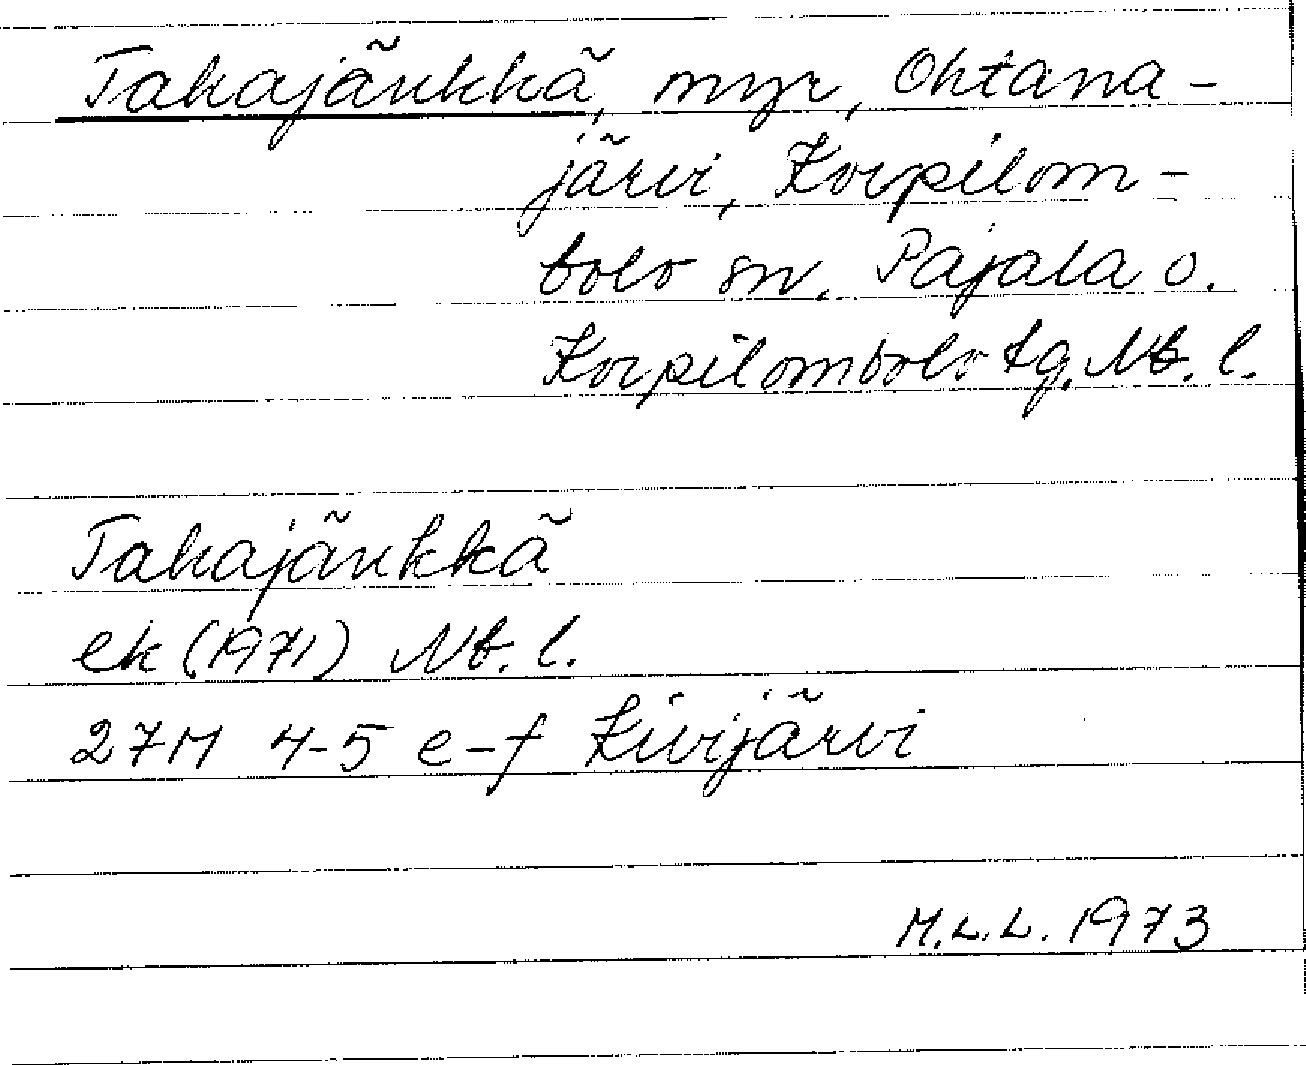 Takajänkkä, myr, Ohtana-
järvi, Korpilom-
bolo sn. Pajala o.
Korpilombolo tg. Nb. l.
Takajänkkä
ek (1971) Nb. l.
27M 4-5 e-f Kivijärvi
M.L.L. 1973